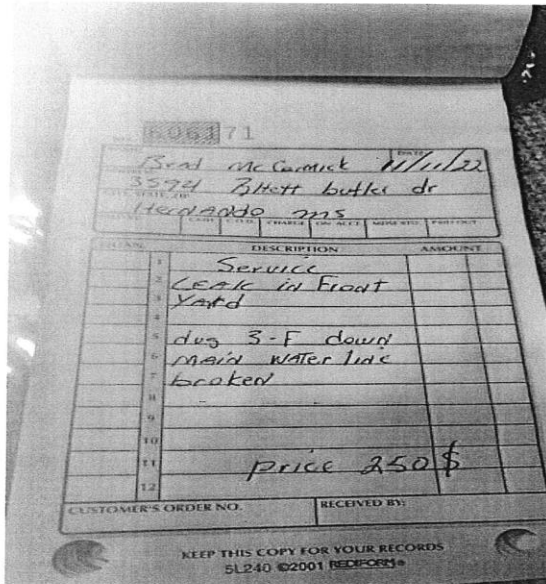 606171
DATE
Brad McCormick 11/11/22
3594 Rhett butler dr
CITY, STATE, ZIP
Hernando ms
CASH C.O.D. CHARGE ON ACCT. MDSE RETD. PAID OUT
QUAN. DESCRIPTION AMOUNT
1 Service
2 LEAK in Front
3 YARD
4
5 dug 3-F down
6 MAIN WATER line
7 broken
8
9
10
11 price 250 $
12
CUSTOMER'S ORDER NO. RECEIVED BY:
KEEP THIS COPY FOR YOUR RECORDS
5L240 ©2001 REDIFORM®